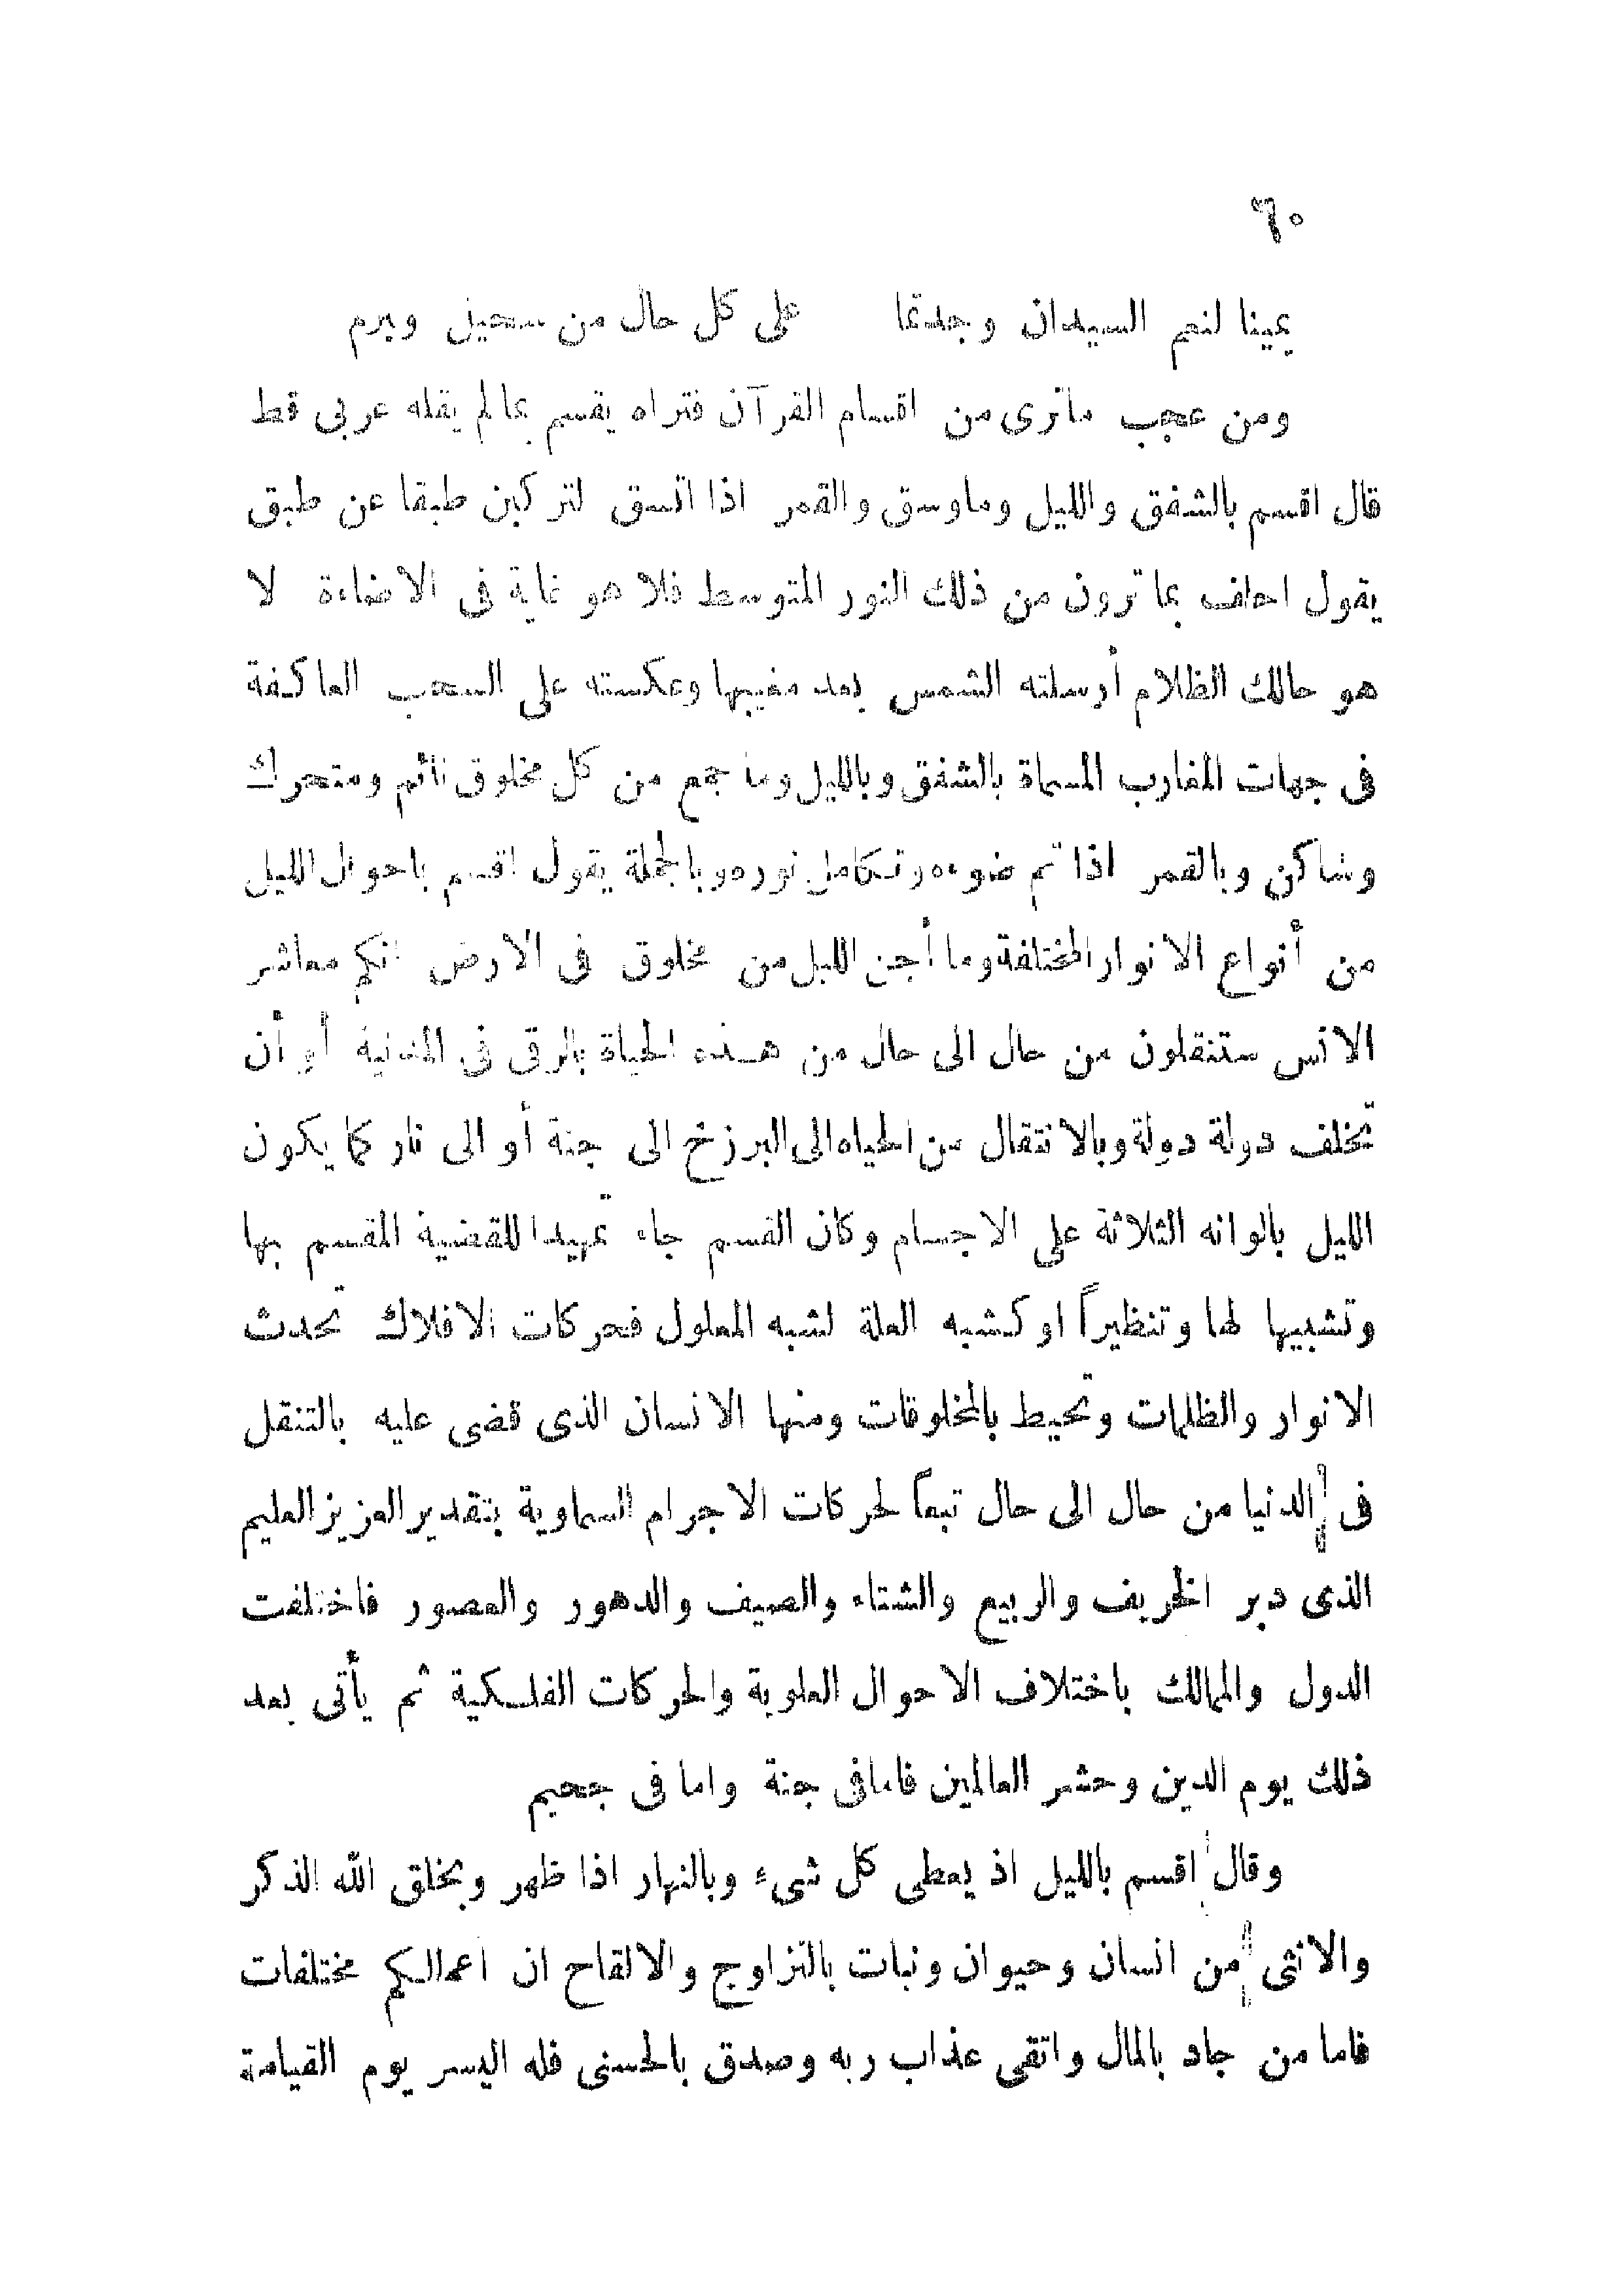 ٦٠
يمينا لنعم السيدان وجدتما على كل حال من سحيل ومبرم
ومن عجب ماترى من اقسام القرآن فتراه يقسم بما لم يقله عربى قط
قال اقسم بالشفق والليل وما وسق والقمر اذا اتسق لتركبن طبقا عن طبق
يقول احلف بما ترون من ذلك النور المتوسط فلا هو غاية فى الاضاءة لا
هو حالك الظلام أرسلته الشمس بعد مغيبها وعكسته على السحب العاكفة
فى جهات المغارب المسماة بالشفق وبالليل وما جمع من كل مخلوق نائم ومتحرك
وساكن وبالقمر اذا تم ضوءه وتكامل نوره وبالجملة يقول اقسم باحوال الليل
من أنواع الانوار المختلفة وما أجن الليل من مخلوق فى الارض انكم معاشر
الانس ستنقلون من حال الى حال من هذه الحياة بالرقى فى المدنية أو أن
تخلف دولة دولة وبالانتقال من الحياه الى البرزخ الى جنة أو الى نار كما يكون
الليل بالوانه الثلاثة على الاجسام وكان القسم جاء تمهيدا للقضية المقسم بها
وتشبيها لها وتنظيراً او كشبه العلة لشبه المعلول فحركات الافلاك تحدث
الانوار والظلمات وتحيط بالمخلوقات ومنها الانسان الذى قضى عليه بالتنقل
فى الدنيا من حال الى حال تبعاً لحركات الاجرام السماوية بتقدير العزيز العليم
الذى دبر الخريف والربيع والشتاء والصيف والدهور والعصور فاختلفت
الدول والممالك باختلاف الاحوال العلوية والحركات الفلكية ثم يأتى بعد
ذلك يوم الدين وحشر العالمين فاما فى جنة واما فى جحيم
وقال اقسم بالليل اذ يغطى كل شىء وبالنهار اذا ظهر وبخلق الله الذكر
والانثى من انسان وحيوان ونبات بالتزاوج والالقاح ان اعمالكم مختلفات
فاما من جاد بالمال واتقى عذاب ربه وصدق بالحسنى فله اليسر يوم القيامة